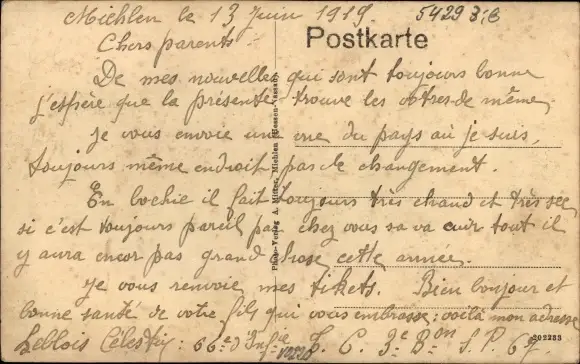 Miehlen le 13 Juin 1919. 5429
Postkarte
Chers parents
De mes nouvelles qui sont toujours bonne
j'espère que la présente trouve les votres de même,
Je vous envoie une vue du pays où je suis,
toujours même endroit pas de changement.
En bochie il fait toujours très chaud et très sec
si c'est toujours pareil par chez vous sa va cuir tout il
y aura encor pas grand chose cette année.
Je vous renvoie mes tikets. Bien bonjour et
bonne santé de votre fils qui vous embrasse, voilà mon adresse
Leblois Célestin : 66e d'Inf C. 3e Bon S.P. 67
Photo-Verlag A. Miehlen (Hessen-Nassau)
202283